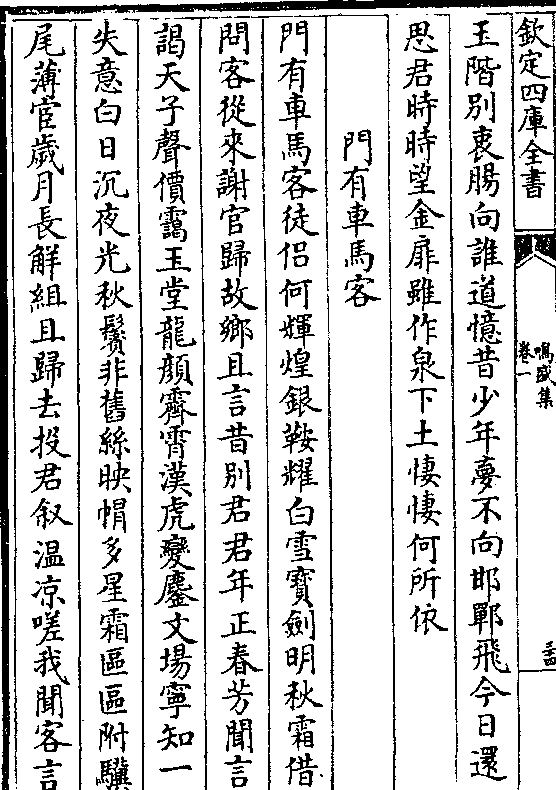 欽定四庫全書
鳴盛集
卷一
三四
玉階別衷腸向誰道憶昔少年夢不向邯鄲飛今日還
思君時時望金扉雖作泉下土悽悽何所依
門有車馬客
門有車馬客徒侶何輝煌銀鞍耀白雪寶劍明秋霜借
問客從來謝官歸故鄉且言昔別君君年正春芳聞言
謁天子聲價靄玉堂龍顔霽霄漢虎變鏖文場寧知一
失意白日沉夜光秋鬢非舊絲映幘多星霜區區附驥
尾薄宦歲月長解組且歸去投君叙温凉嗟我聞客言